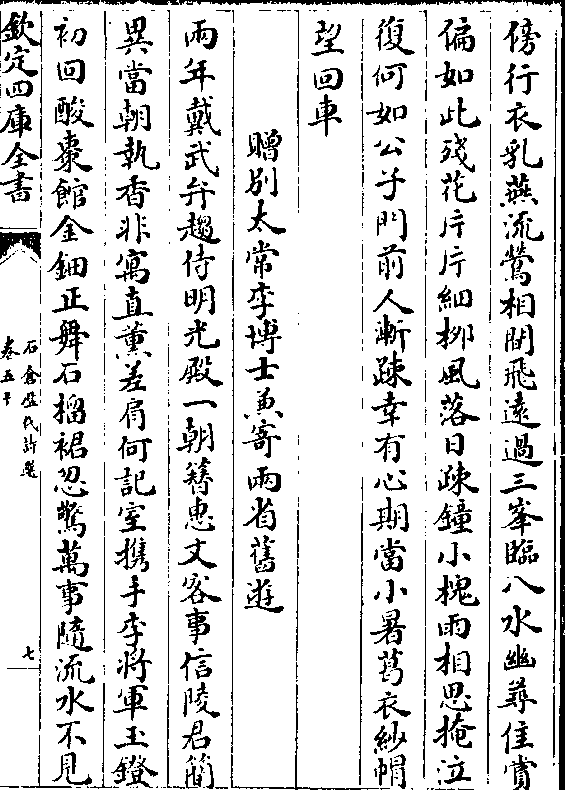 傍行衣乳燕流鶯相間飛遠過三峯臨八水幽尋佳賞
偏如此殘花片片細柳風落日疎鐘小槐雨相思掩泣
復何如公子門前人漸踈幸有心期當小暑葛衣紗帽
望回車
贈别太常李博士兼寄兩省舊遊
兩年戴武弁趨侍明光殿一朝簪惠文客事信陵君簡
異當朝執香非寓直薰差肩何記室攜手李將軍玉鐙
初回酸棗館金鈿正舞石榴裙忽驚萬事隨流水不見
欽定四庫全書
石倉歷代詩選
卷五十
七